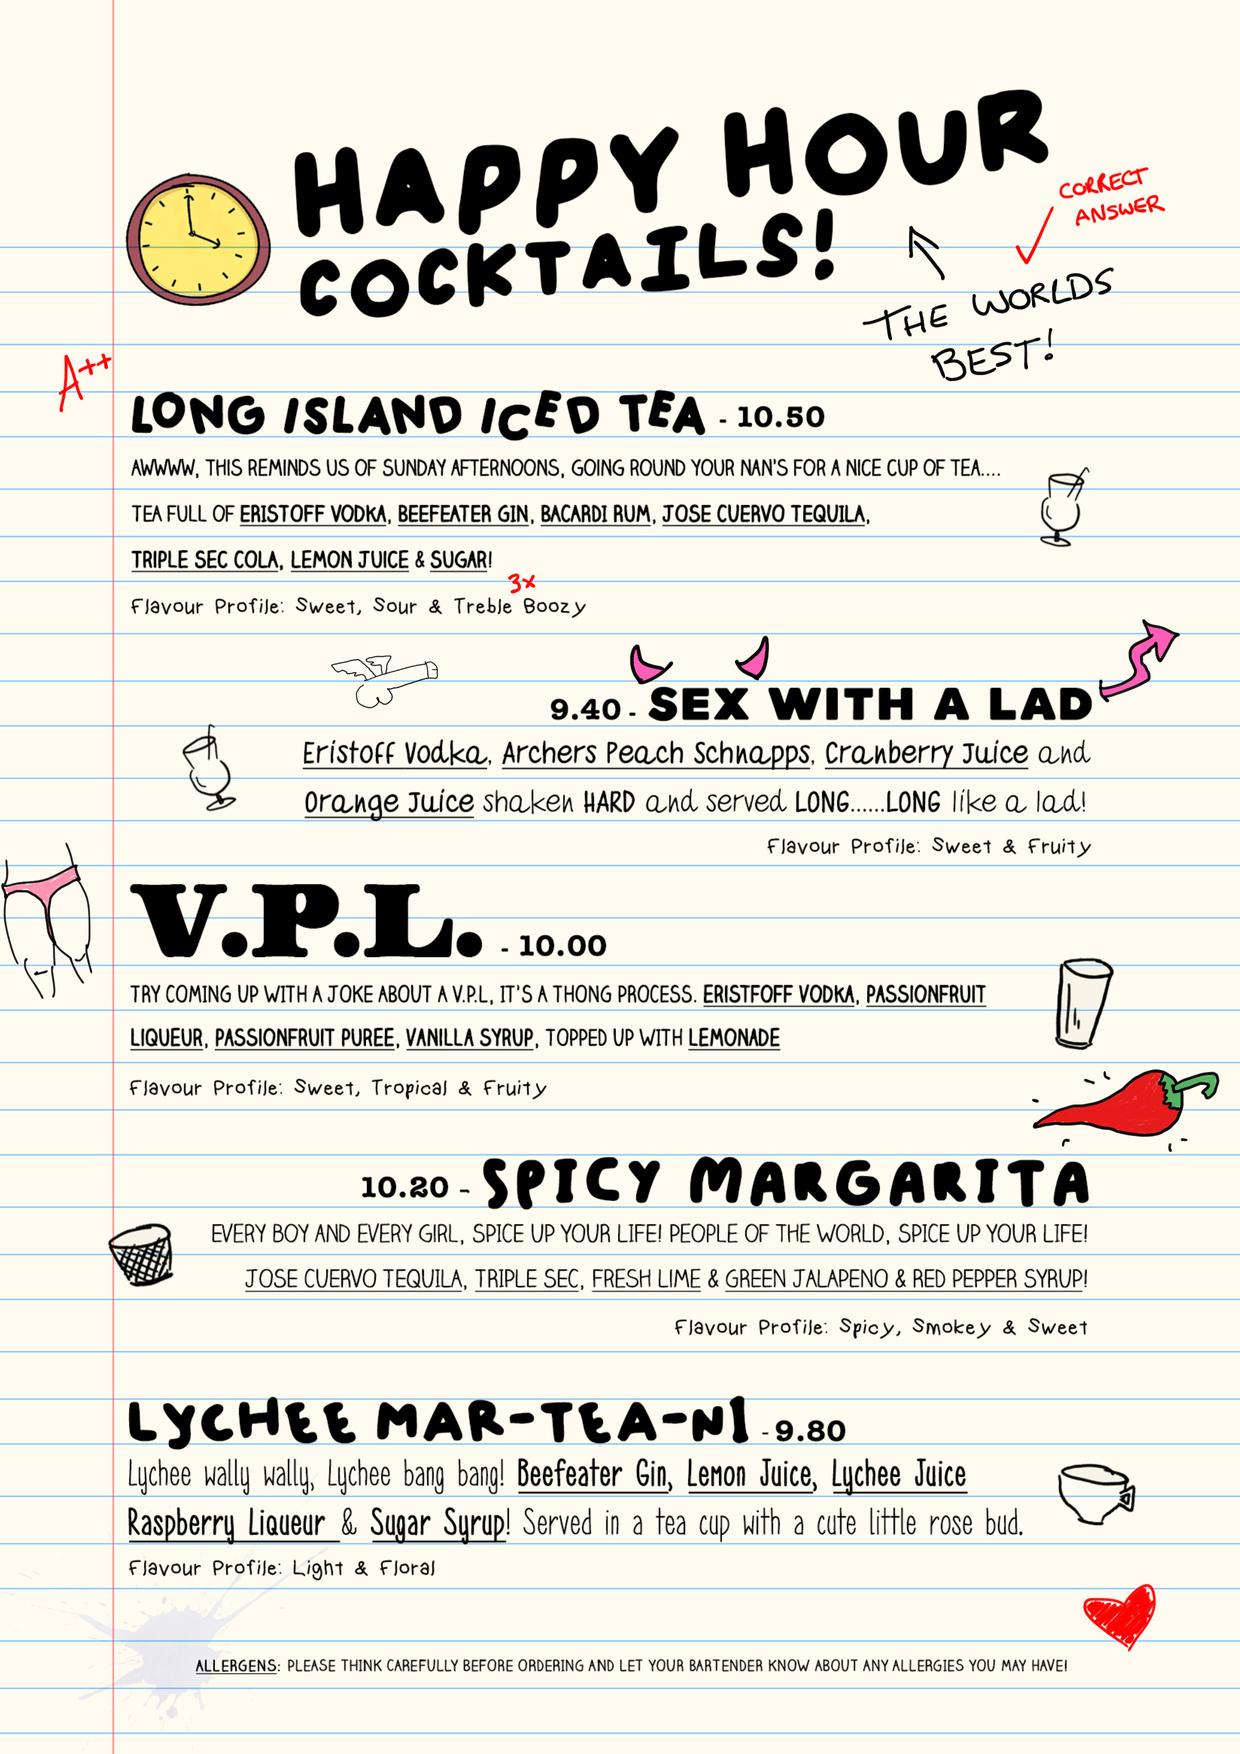 HAPPY HOUR
COCKTAILS!
CORRECT
ANSWER
THE WORLDS
BEST!
A++
LONG ISLAND ICED TEA - 10.50
AWWWW, THIS REMINDS US OF SUNDAY AFTERNOONS, GOING ROUND YOUR NAN'S FOR A NICE CUP OF TEA....
TEA FULL OF ERISTOFF VODKA, BEEFEATER GIN, BACARDI RUM, JOSE CUERVO TEQUILA,
TRIPLE SEC COLA, LEMON JUICE & SUGAR!
3x
Flavour Profile: Sweet, Sour & Treble Boozy
9.40 - SEX WITH A LAD
Eristoff Vodka, Archers Peach Schnapps, Cranberry Juice and
Orange Juice shaken HARD and served LONG......LONG like a lad!
Flavour Profile: Sweet & Fruity
V.P.L. - 10.00
TRY COMING UP WITH A JOKE ABOUT A V.P.L, IT'S A THONG PROCESS. ERISTFOFF VODKA, PASSIONFRUIT
LIQUEUR, PASSIONFRUIT PUREE, VANILLA SYRUP, TOPPED UP WITH LEMONADE
Flavour Profile: Sweet, Tropical & Fruity
10.20 - SPICY MARGARITA
EVERY BOY AND EVERY GIRL, SPICE UP YOUR LIFE! PEOPLE OF THE WORLD, SPICE UP YOUR LIFE!
JOSE CUERVO TEQUILA, TRIPLE SEC, FRESH LIME & GREEN JALAPENO & RED PEPPER SYRUP!
Flavour Profile: Spicy, Smokey & Sweet
LYCHEE MAR-TEA-NI - 9.80
Lychee wally wally, Lychee bang bang! Beefeater Gin, Lemon Juice, Lychee Juice
Raspberry Liqueur & Sugar Syrup! Served in a tea cup with a cute little rose bud.
Flavour Profile: Light & Floral
ALLERGENS: PLEASE THINK CAREFULLY BEFORE ORDERING AND LET YOUR BARTENDER KNOW ABOUT ANY ALLERGIES YOU MAY HAVE!